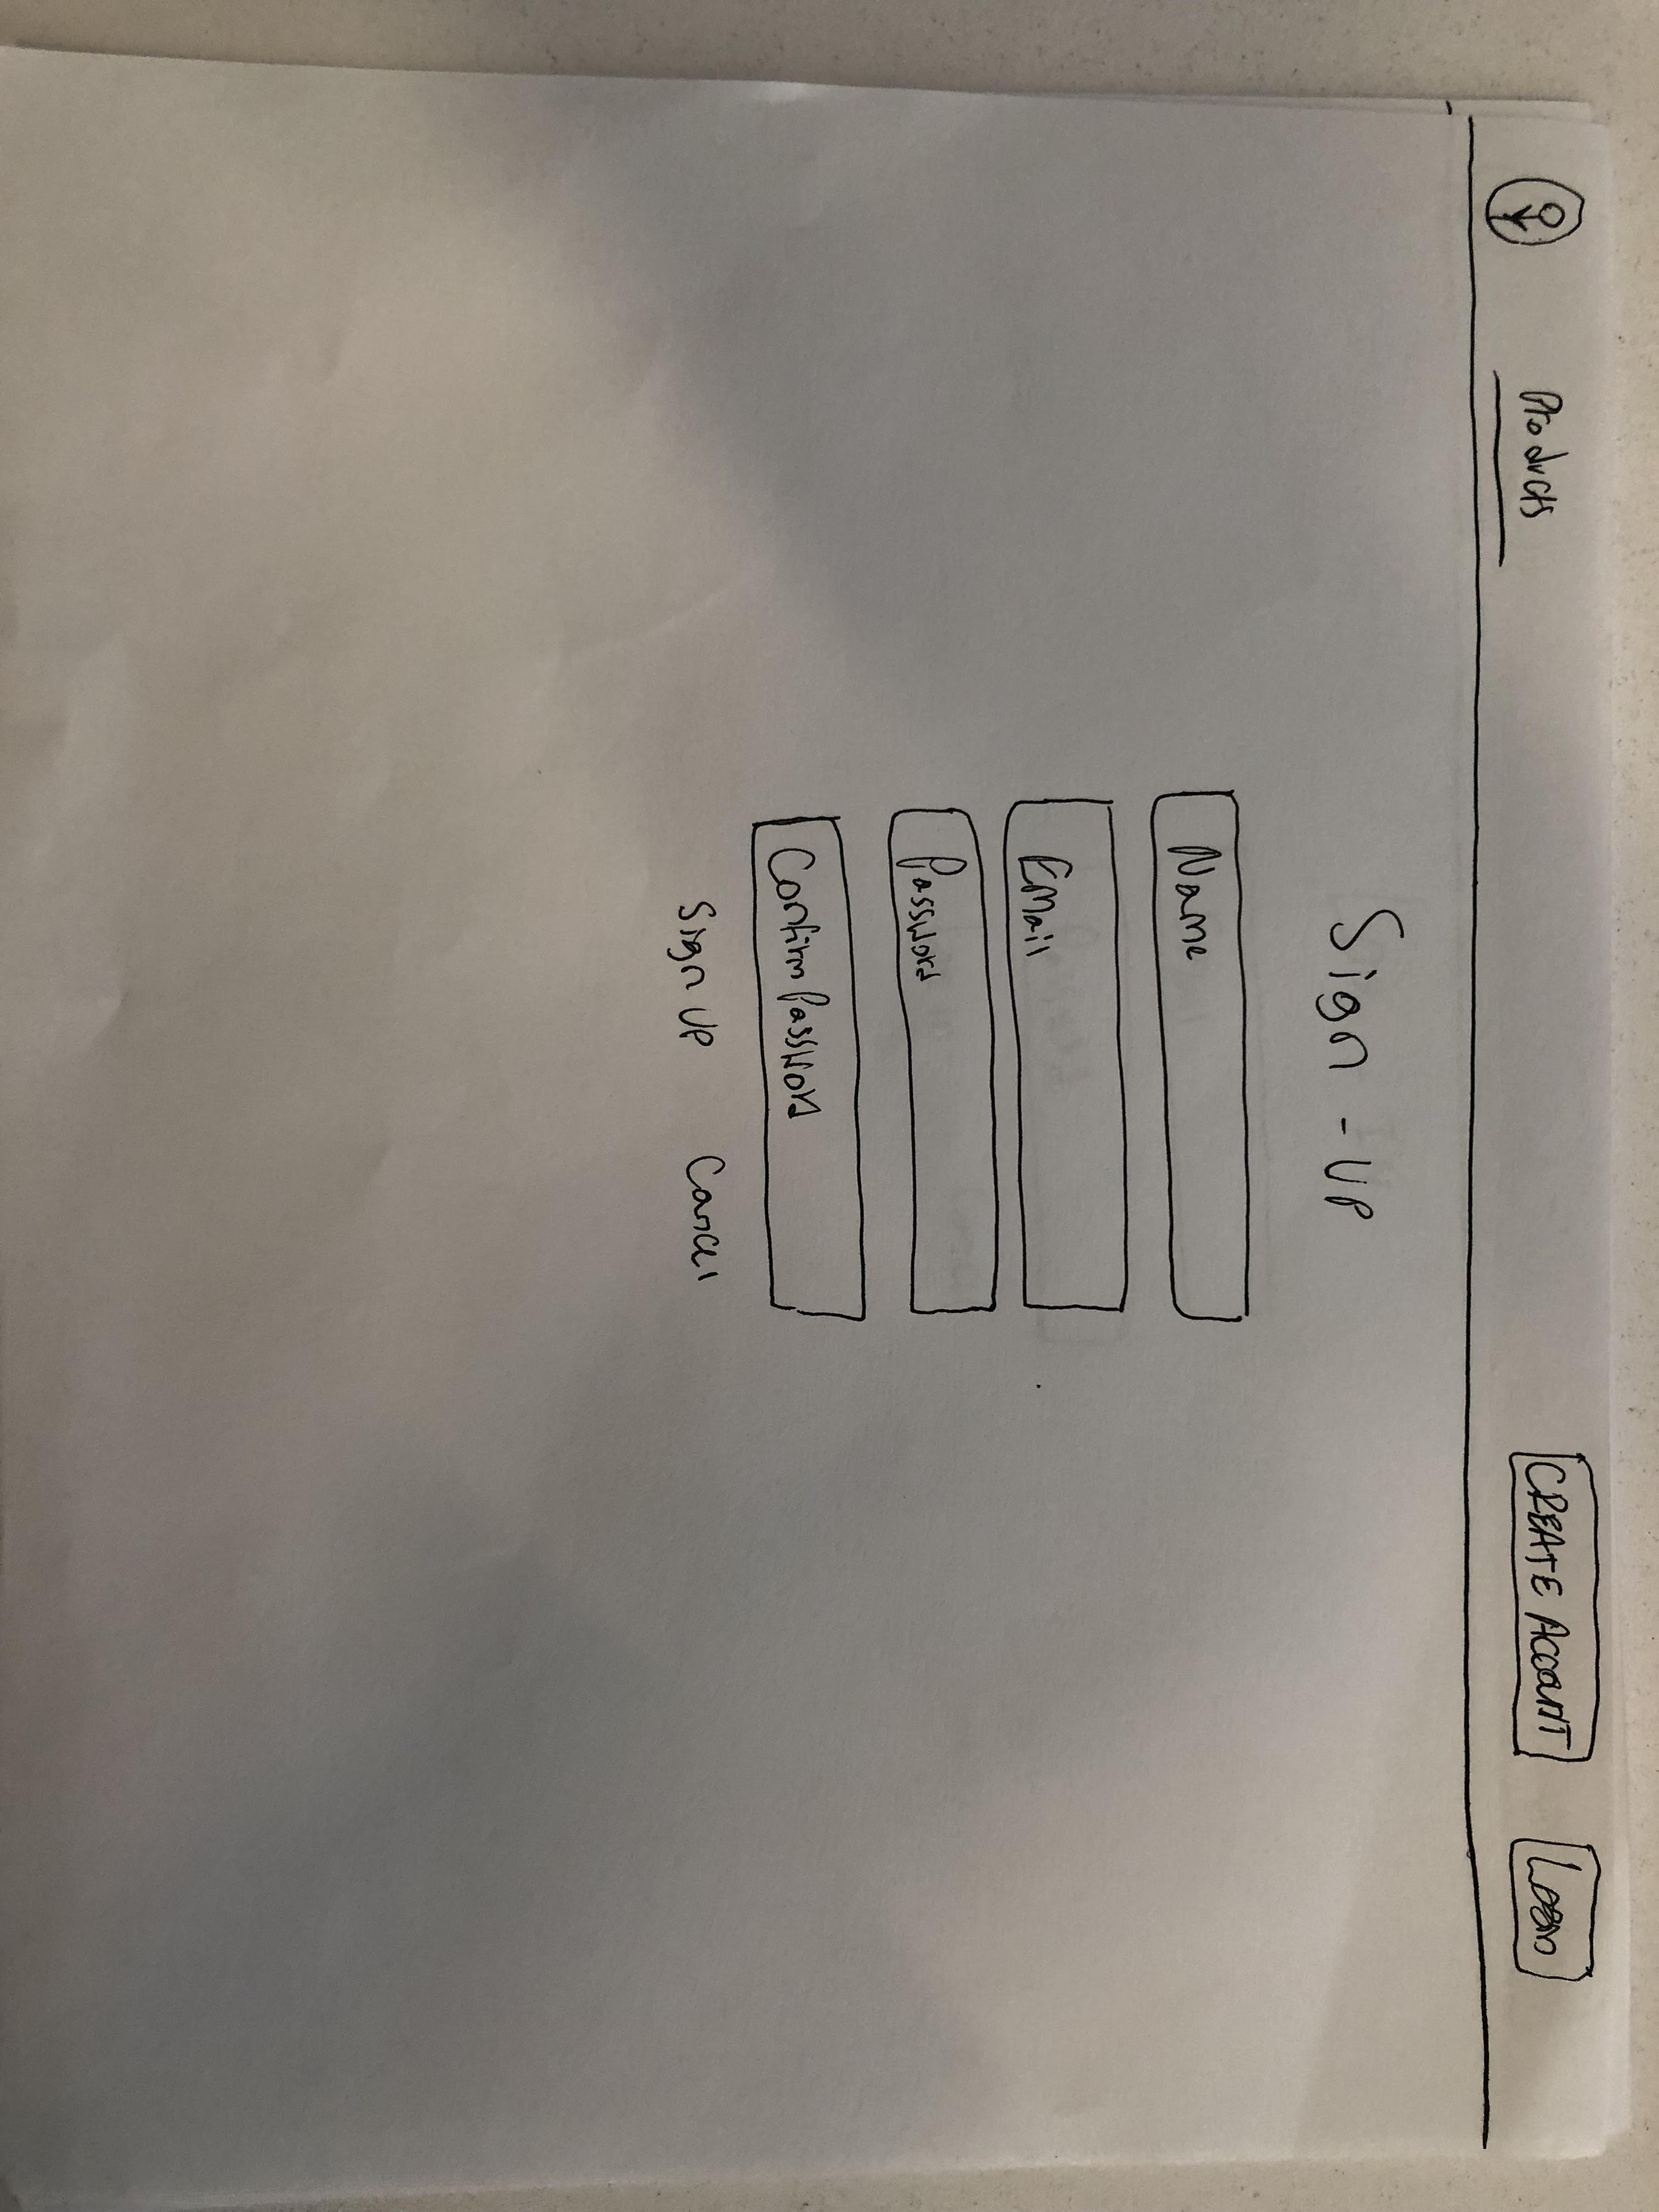 Products
CREATE ACCOUNT
Login
Sign - UP
Name
EMail
Password
Confirm Password
Sign UP
Cancel